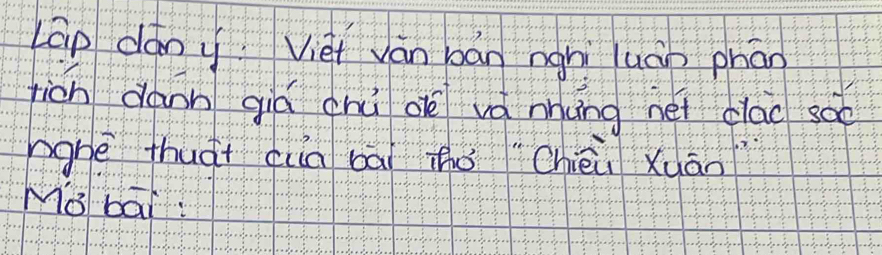 Lập dàn ý: Viết văn bản nghị luận phân
tích đánh giá chủ đề và những nét đặc sắc
nghệ thuật của bài thơ "Chiều Xuân"
Mở bài: